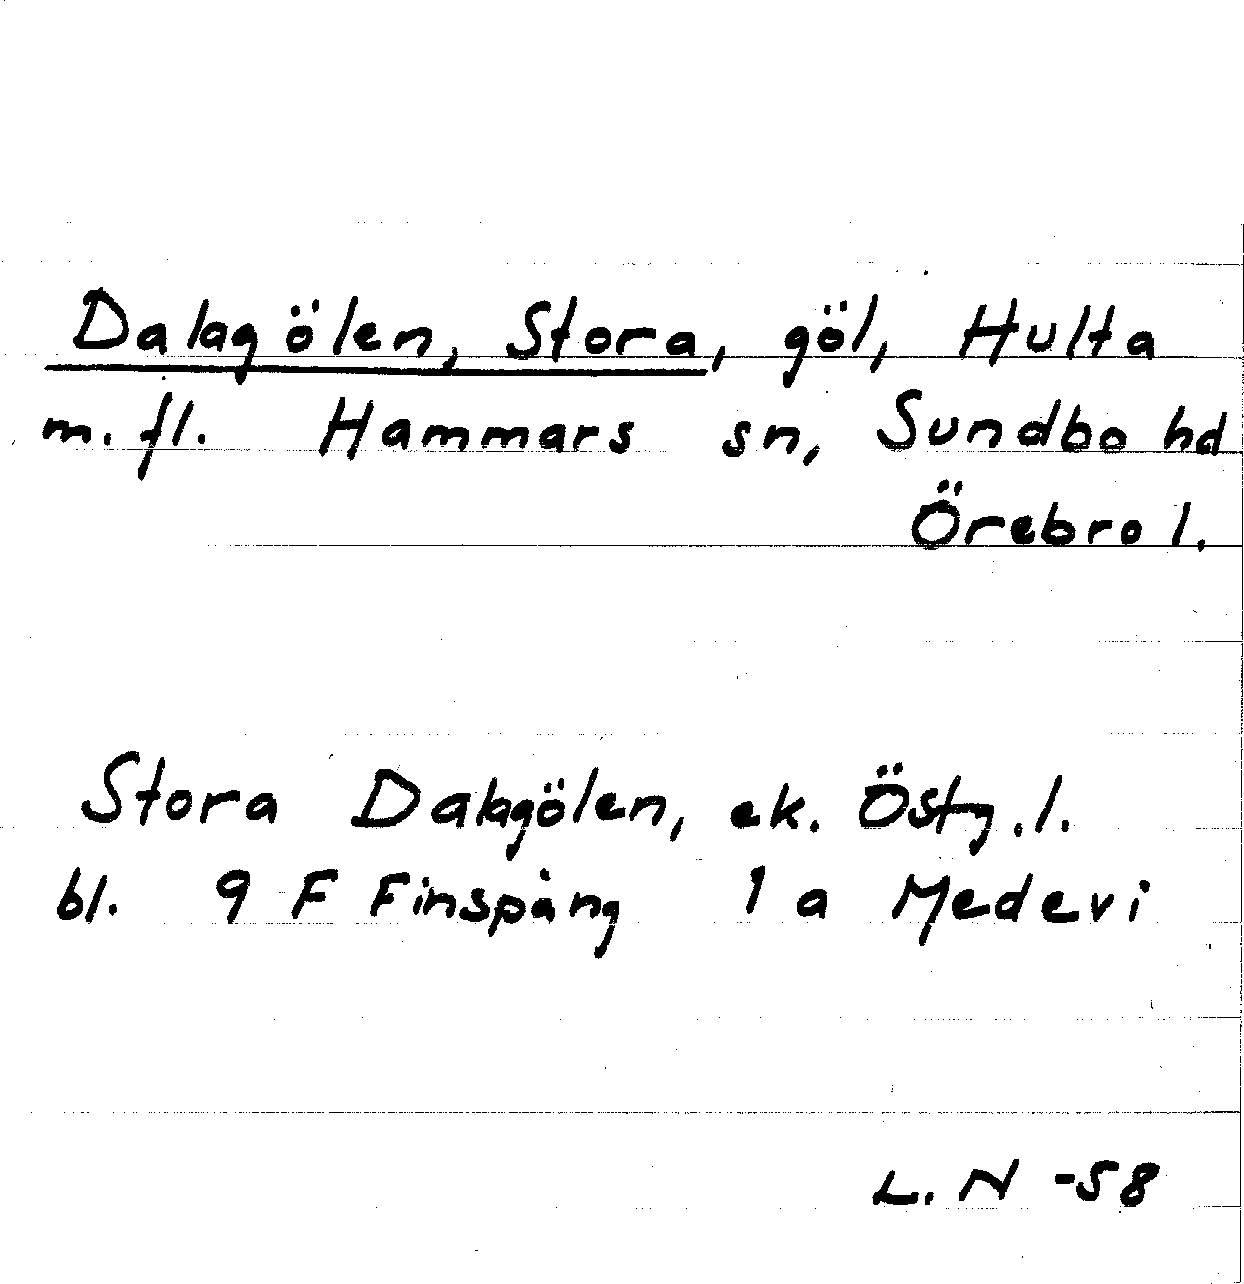 Dalagölen, Stora, göl, Hulta
m. fl. Hammars sn, Sundbo hd
Örebro l.
Stora Dalagölen, ek. Östg. l.
bl. 9 F Finspång 1 a Medevi
L. N -58